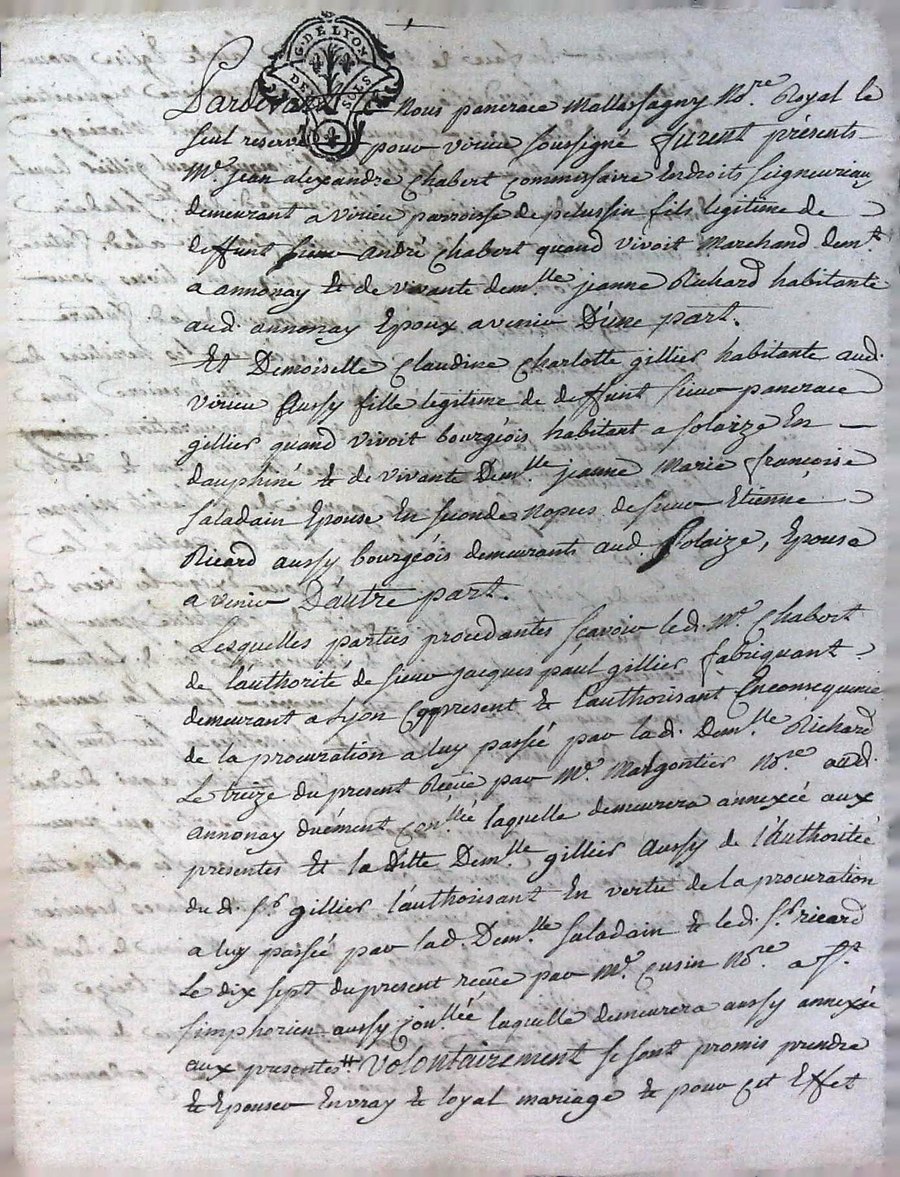 G. DE LYON
DEUX SOLS
Pardevant Nous pancrace Mallassagny No.re Royal le
seul reservé pour virieu soussigné furent présents
M.e jean alexandre Chabert Commissaire Endroits Seigneuriaux
demeurant a virieu parroisse de pelussin fils legitime de
deffunt sieur andré Chabert quand vivoit Marchand dem.t
a annonay & de vivante dem.lle jeanne Richard habitante
aud. annonay Epoux avenir D'une part.
Et Demoiselle Claudine Charlotte gillier habitante aud.
virieu Aussy fille legitime de deffunt sieur pancrace
gillier quand vivoit bourgéois habitant a solaize En
dauphiné & de vivante Dem.lle jeanne Marie françoise
saladain Epouse En seconde Nopces de sieur Etienne
Ricard aussy bourgéois demeurants aud. Solaize, Epouse
avenir D'autre part.
Lesquelles parties procedantes scavoir led. M.e Chabert
de l'authorité de sieur jacques paul gillier fabriquant
demeurant a Lyon Cy present & l'authorisant Enconsequence
de la procuration a luy passée par lad. Dem.lle Richard
Le treize du present Reçüe par M.e Margontier No.re aud.
annonay duëment con.llée laquelle demeurera annexée aux
presentes Et la ditte Dem.lle gillier Aussy de l'authoritée
dud. s.r gillier l'authorisant En vertu de la procuration
a luy passée par lad. Dem.lle saladain & led. s.r ricard
Le dix sept du present reçüe par M.e cusin No.re a s.t
simphorien aussy con.llée laquelle demeurera aussy annexée
aux presentes Volontairement se sont promis prendre
& Epouser Envray & loyal mariage & pour cet Effet